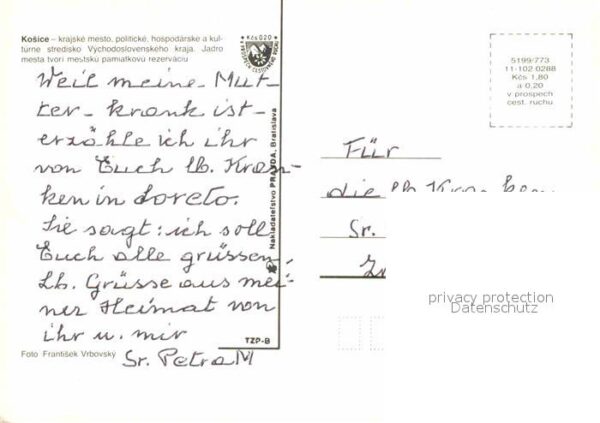 Košice – krajské mesto, politické, hospodárske a kul-
túrne stredisko Východoslovenského kraja. Jadro
mesta tvorí mestskú pamiatkovú rezerváciu
Kčs 0,20
V PROSPECH CESTOVNÉHO RUCHU
Weil meine Mut-
ter krank ist-
erzähle ich ihr
von Euch lb. Kran-
ken in Loreto.
Sie sagt: ich soll
Euch alle grüssen.
Lb. Grüsse aus mei-
ner Heimat von
ihr u. mir
Sr. Petra M
Foto František Vrbovský
TZP-B
Nakladateľstvo PRAVDA, Bratislava
5199/773
11-102-0288
Kčs 1,80
a 0,20
v prospech
cest. ruchu
Für
die lb. Kranken
Sr.
privacy protection
Datenschutz